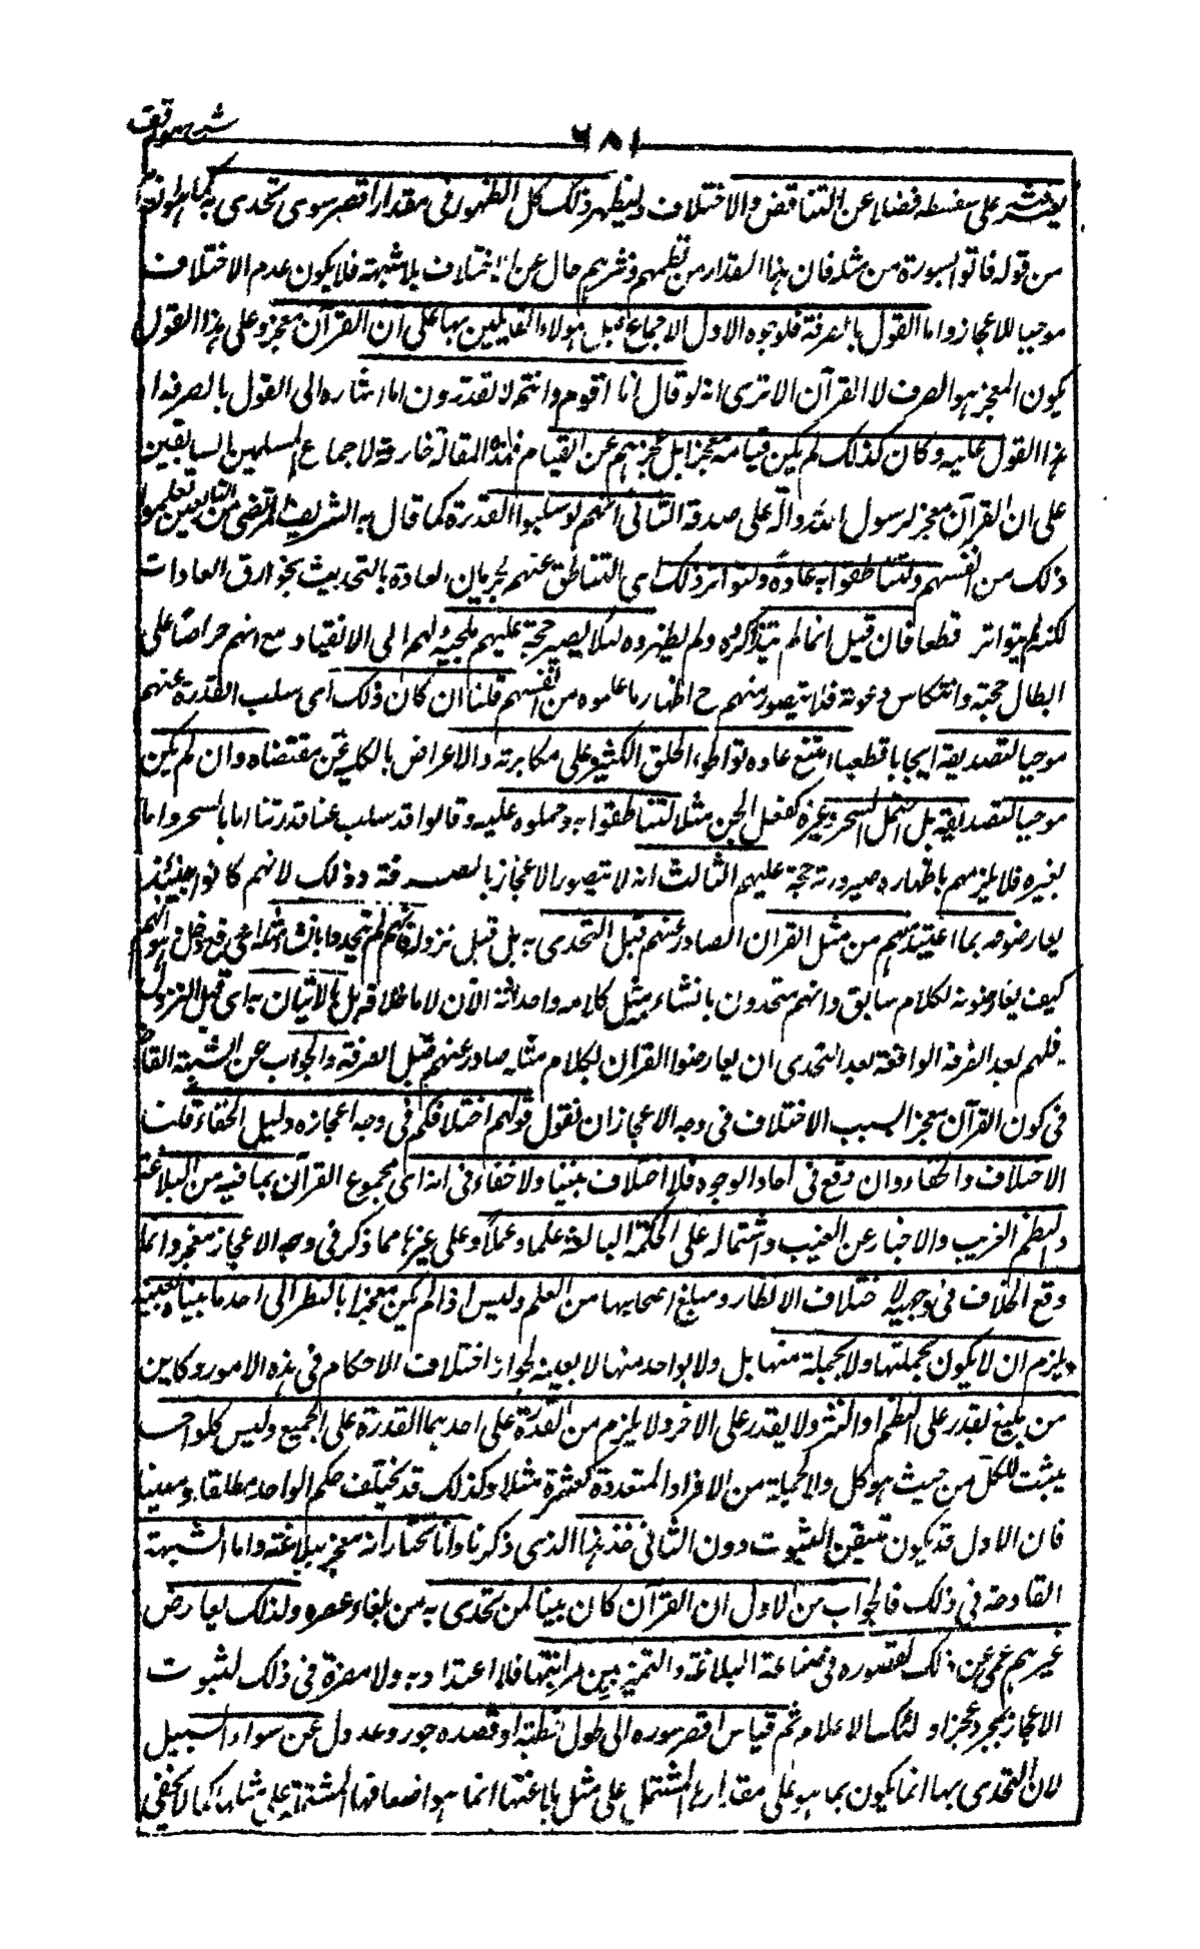 شرح مواقف
٦٨١
يعثر على سقطة فضلا عن التناقض والاختلاف وليظهر ذلك كل الظهور فى مقدار اقصر سورة تحدى به كما
من قوله فاتوا بسورة من مثله فان هذا المقدار من نظمهم ونثرهم خال عن الاختلاف بلا شبهة فلا يكون عدم الاختلاف
موجبا للاعجاز واما القول بالصرفة فلوجوه الاول الاجماع قبل هؤلاء القايلين بها على ان القرآن معجز وعلى هذا القول
يكون المعجز هو الصرف لا القرآن الا ترى انه لو قال انا اقوم وانتم لا تقدرون اما اشاره الى القول بالصرفة او
هذا القول عليه وكان كذلك لم يكن قيامه معجزا بل عجزهم عن القيام فهذه المقالة خارقة لاجماع المسلمين السابقين
على ان القرآن معجز لرسول الله دالة على صدقه الثانى انهم لو سلبوا القدرة كما قال به الشريف المرتضى من التابعين لعلموا
ذلك من انفسهم ولتناطقوا به عادة ولتواتر ذلك اى التناطق عنهم لجريان العادة بالتحديث بخوارق العادات
لكنه لم يتواتر قطعا فان قيل انما لم يتذاكروه ولم يظهروه لئلا يصير حجة عليهم ملجئة لهم الى الانقياد مع انهم حراصا على
ابطال حجته وانتكاس دعوته فلا يتصور منهم ح اظهار ما علموه من انفسهم قلنا ان كان ذلك اى سلب القدرة عنهم
موجبا لتصديقه ايجابا قطعيا امتنع عاده تواطوء الخلق الكثير على مكابرته والاعراض بالكلية عن مقتضاه وان لم يكن
موجبا لتصديقه بل احتمل السحر وغيره كفعل الجن مثلا لتناطقوا به وحملوه عليه وقالوا قد سلب عنا قدرتنا اما بالسحر واما
بغيره فلا يلزمهم باظهاره صيرورته حجة عليهم الثالث انه لا يتصور الاعجاز بالصرفة وذلك لانهم كانوا حينئذ
يعارضونه بما اعتيد منهم من مثل القرآن الصادر عنهم قبل التحدى به بل قبل نزوله فانهم لم يتحدوا بانشاء مثله
كيف يعارضونه بكلام سابق وانهم متحدون بانشاء مثل كلامه واحداثه الآن لا ما طلاقه بل بالاتيان به اى قبل النزول
فلهم بعد الصرفة الواقعة بعد التحدى ان يعارضوا القرآن بكلام مثله صادر عنهم قبل الصرفة والجواب عن الشبهة
فى كون القرآن معجزا بسبب الاختلاف فى وجه الاعجاز ان نقول قولهم اختلافكم فى وجه اعجازه دليل الخفاء قلنا
الاختلاف والخفاء وان وقع فى احاد الوجوه فلا اختلاف بيننا ولا خفاء فى انه اى مجموع القرآن بما فيه من البلاغة
والنظم الغريب والاخبار عن الغيب واشتماله على الحكمة البالغة علما وعملا وعلى غيرها مما ذكر فى وجه الاعجاز معجز وانما
وقع الخلاف فى وجهه لاختلاف الانظار ومبلغ اصحابها من العلم وليس اذا لم يكن معجزا بالنظر الى احدها بعينه
يلزم ان لا يكون بجملتها ولا بجملة منها بل ولا بواحد منها لا بعينه لجواز اختلاف الاحكام فى هذه الامور وكاين
من بليغ يقدر على النظم او النثر ولا يقدر على الاخر ولا يلزم من القدرة على احدهما القدرة على الجميع وليس كلما
يثبت للكل من حيث هو كل ولا لجملة من الافراد المتعددة كعشرة مثلا وكذلك قد يختلف حكم الواحد مطلقا ومعينا
فان الاول قد يكون متيقن الثبوت دون الثانى خذ هذا الذى ذكرنا وانا نختار انه معجز ببلاغته واما الشبهة
القادحة فى ذلك فالجواب من الاول ان القرآن كان بينا لمن تحدى به من بلغاء عصره ولذلك لم يعارض
غيرهم عمى عن ذلك لقصوره فى صناعة البلاغة والتمييز بين مراتبها فلا اعتداد به ولا مضرة فى ذلك لثبوت
الاعجاز بمجرد عجز اولئك الاعلام ثم قياس اقصر سوره الى طول خطبة او قصده جور وعدول عن سواء السبيل
لان التحدى بها انما يكون بما هو على مقدارها المشتمل على مثل بلاغتها انما هو اضعافها المشتملة على مثلها كما لا يخفى